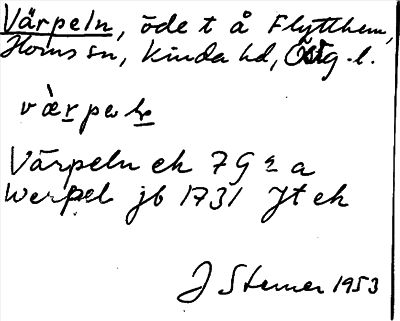 Värpeln, öde t å Flytthem,
Horns sn, Kinda hd, Östg. l.
vàrpe
Värpeln ek 79 a
Werpel jb 1731 Jt ek
J Sterner 1953